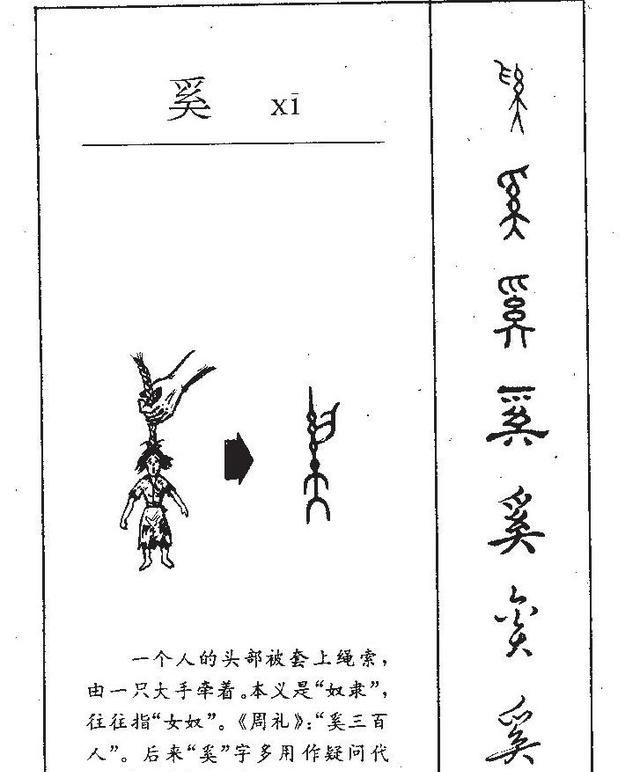 奚 xī
一个人的头部被套上绳索，
由一只大手牵着。本义是“奴隶”，
往往指“女奴”。《周礼》：“奚三百
人”。后来“奚”字多用作疑问代